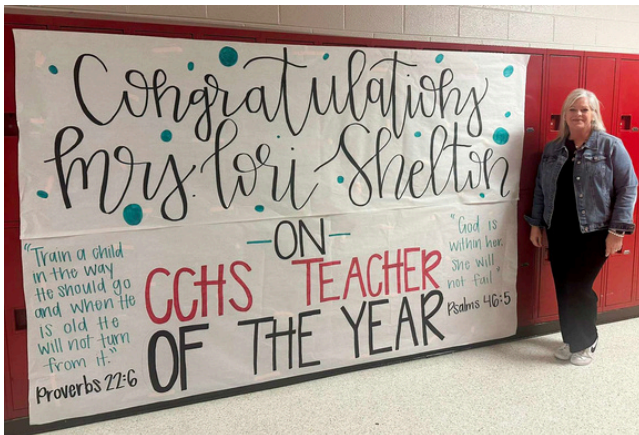 Congratulations
Mrs. Lori Shelton
-ON-
CCHS TEACHER
OF THE YEAR
"Train a child
in the way
He should go
and when He
is old He
will not turn
from it."
Proverbs 22:6
"God is
within her,
she will
not fail"
Psalms 46:5